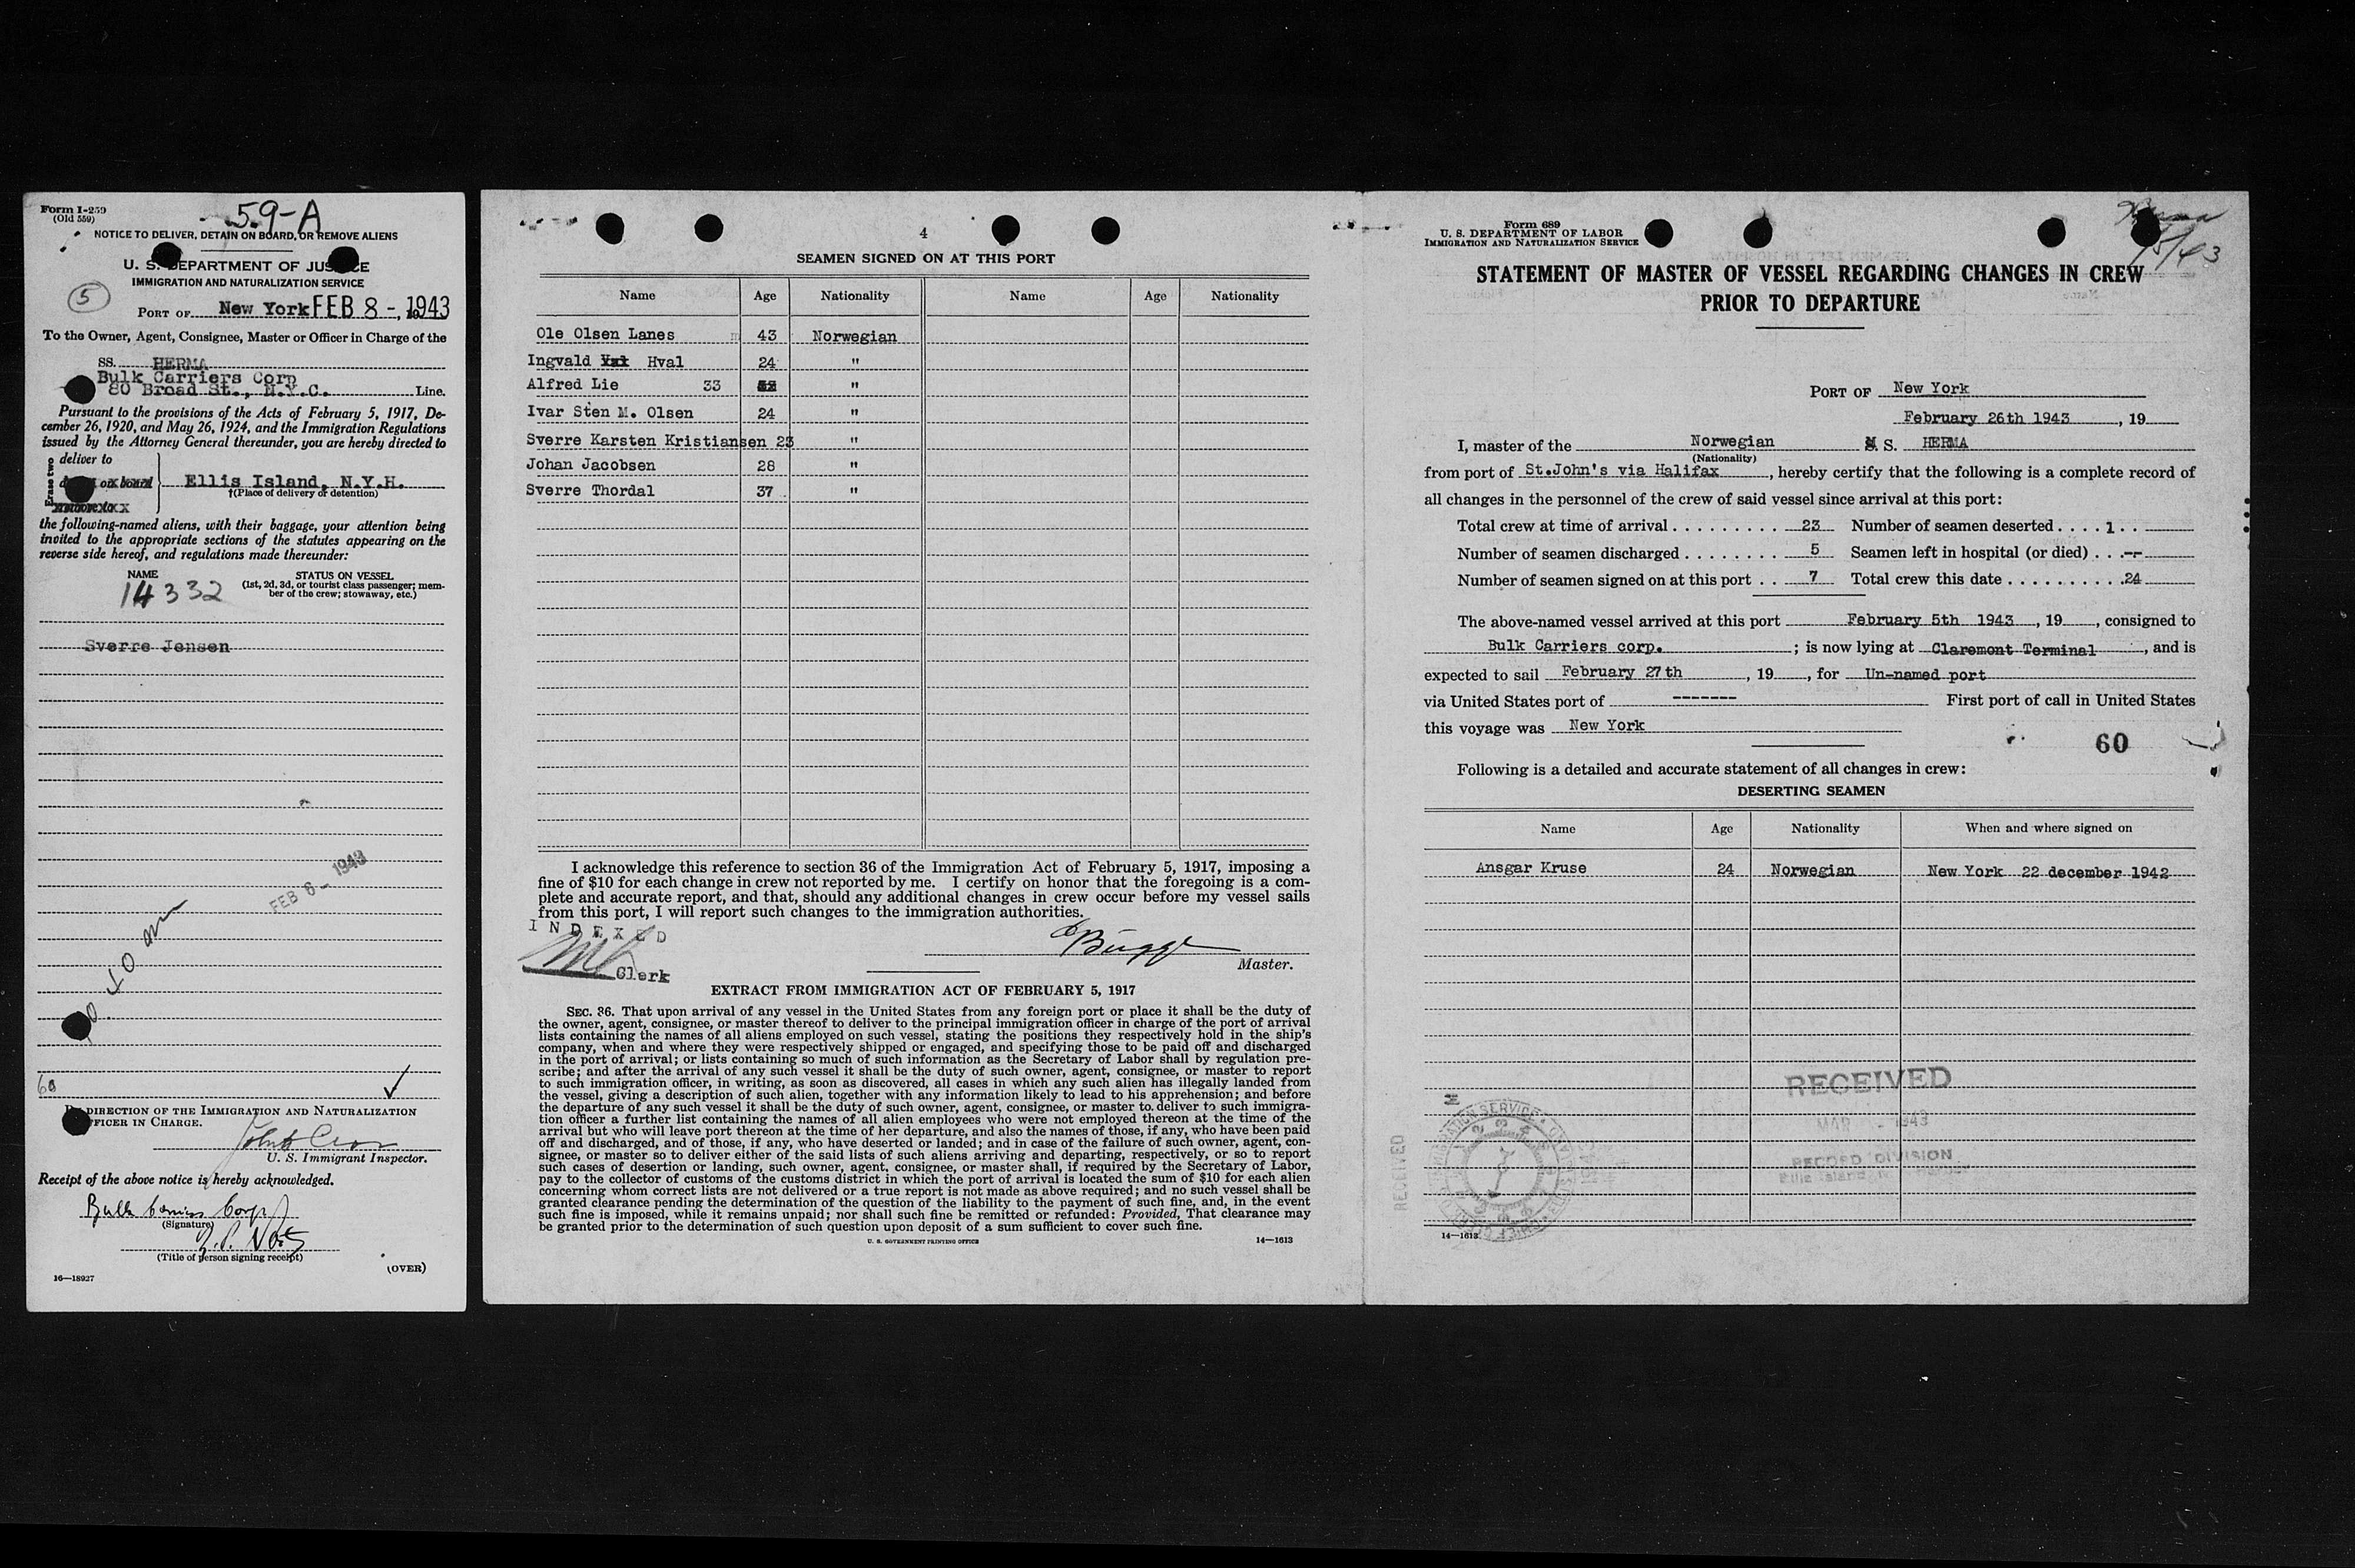 Form I-259
(Old 559)
59-A
NOTICE TO DELIVER, DETAIN ON BOARD, OR REMOVE ALIENS
U. S. DEPARTMENT OF JUSTICE
IMMIGRATION AND NATURALIZATION SERVICE
5
PORT OF New York FEB 8 -, 1943
To the Owner, Agent, Consignee, Master or Officer in Charge of the
SS. HERMA
Bulk Carriers Corp
80 Broad St., N.Y.C. Line.
Pursuant to the provisions of the Acts of February 5, 1917, De-
cember 26, 1920, and May 26, 1924, and the Immigration Regulations
issued by the Attorney General thereunder, you are hereby directed to
Erase two
deliver to
on board
Ellis Island, N.Y.H.
†(Place of delivery or detention)
the following-named aliens, with their baggage, your attention being
invited to the appropriate sections of the statutes appearing on the
reverse side hereof, and regulations made thereunder:
NAME
STATUS ON VESSEL
(1st, 2d, 3d, or tourist class passenger; mem-
ber of the crew; stowaway, etc.)
14332
Sverre Jensen
FEB 8 - 1943
60
DIRECTION OF THE IMMIGRATION AND NATURALIZATION
OFFICER IN CHARGE.
U. S. Immigrant Inspector.
Receipt of the above notice is hereby acknowledged.
Bulk Carriers Corp
(Signature)
(Title of person signing receipt)
(OVER)
16—18927
4
SEAMEN SIGNED ON AT THIS PORT
Name Age Nationality Name Age Nationality
Ole Olsen Lanes 43 Norwegian
Ingvald Hval 24 "
Alfred Lie 33 "
Ivar Sten M. Olsen 24 "
Sverre Karsten Kristiansen 23 "
Johan Jacobsen 28 "
Sverre Thordal 37 "
I acknowledge this reference to section 36 of the Immigration Act of February 5, 1917, imposing a
fine of $10 for each change in crew not reported by me. I certify on honor that the foregoing is a com-
plete and accurate report, and that, should any additional changes in crew occur before my vessel sails
from this port, I will report such changes to the immigration authorities.
INDEXED
Clerk
EBugge
Master.
EXTRACT FROM IMMIGRATION ACT OF FEBRUARY 5, 1917
SEC. 36. That upon arrival of any vessel in the United States from any foreign port or place it shall be the duty of
the owner, agent, consignee, or master thereof to deliver to the principal immigration officer in charge of the port of arrival
lists containing the names of all aliens employed on such vessel, stating the positions they respectively hold in the ship's
company, when and where they were respectively shipped or engaged, and specifying those to be paid off and discharged
in the port of arrival; or lists containing so much of such information as the Secretary of Labor shall by regulation pre-
scribe; and after the arrival of any such vessel it shall be the duty of such owner, agent, consignee, or master to report
to such immigration officer, in writing, as soon as discovered, all cases in which any such alien has illegally landed from
the vessel, giving a description of such alien, together with any information likely to lead to his apprehension; and before
the departure of any such vessel it shall be the duty of such owner, agent, consignee, or master to deliver to such immigra-
tion officer a further list containing the names of all alien employees who were not employed thereon at the time of the
arrival but who will leave port thereon at the time of her departure, and also the names of those, if any, who have been paid
off and discharged, and of those, if any, who have deserted or landed; and in case of the failure of such owner, agent, con-
signee, or master so to deliver either of the said lists of such aliens arriving and departing, respectively, or so to report
such cases of desertion or landing, such owner, agent, consignee, or master shall, if required by the Secretary of Labor,
pay to the collector of customs of the customs district in which the port of arrival is located the sum of $10 for each alien
concerning whom correct lists are not delivered or a true report is not made as above required; and no such vessel shall be
granted clearance pending the determination of the question of the liability to the payment of such fine, and, in the event
such fine is imposed, while it remains unpaid; nor shall such fine be remitted or refunded: Provided, That clearance may
be granted prior to the determination of such question upon deposit of a sum sufficient to cover such fine.
U. S. GOVERNMENT PRINTING OFFICE
14—1613
Form 689
U. S. DEPARTMENT OF LABOR
IMMIGRATION AND NATURALIZATION SERVICE
STATEMENT OF MASTER OF VESSEL REGARDING CHANGES IN CREW
PRIOR TO DEPARTURE
PORT OF New York
February 26th 1943, 19
I, master of the Norwegian M S. HERMA
(Nationality)
from port of St.John's via Halifax, hereby certify that the following is a complete record of
all changes in the personnel of the crew of said vessel since arrival at this port:
Total crew at time of arrival . . . . . . . . . 23 Number of seamen deserted . . . . 1 . .
Number of seamen discharged . . . . . . . . 5 Seamen left in hospital (or died) . . .--
Number of seamen signed on at this port . . 7 Total crew this date . . . . . . . . . . 24
The above-named vessel arrived at this port February 5th 1943, 19, consigned to
Bulk Carriers corp. ; is now lying at Claremont Terminal, and is
expected to sail February 27th, 19, for Un-named port
via United States port of ------- First port of call in United States
this voyage was New York
60
Following is a detailed and accurate statement of all changes in crew:
DESERTING SEAMEN
Name Age Nationality When and where signed on
Ansgar Kruse 24 Norwegian New York 22 december 1942
RECEIVED
MAR - 1943
RECORD DIVISION
Ellis Island
RECEIVED
14—1613